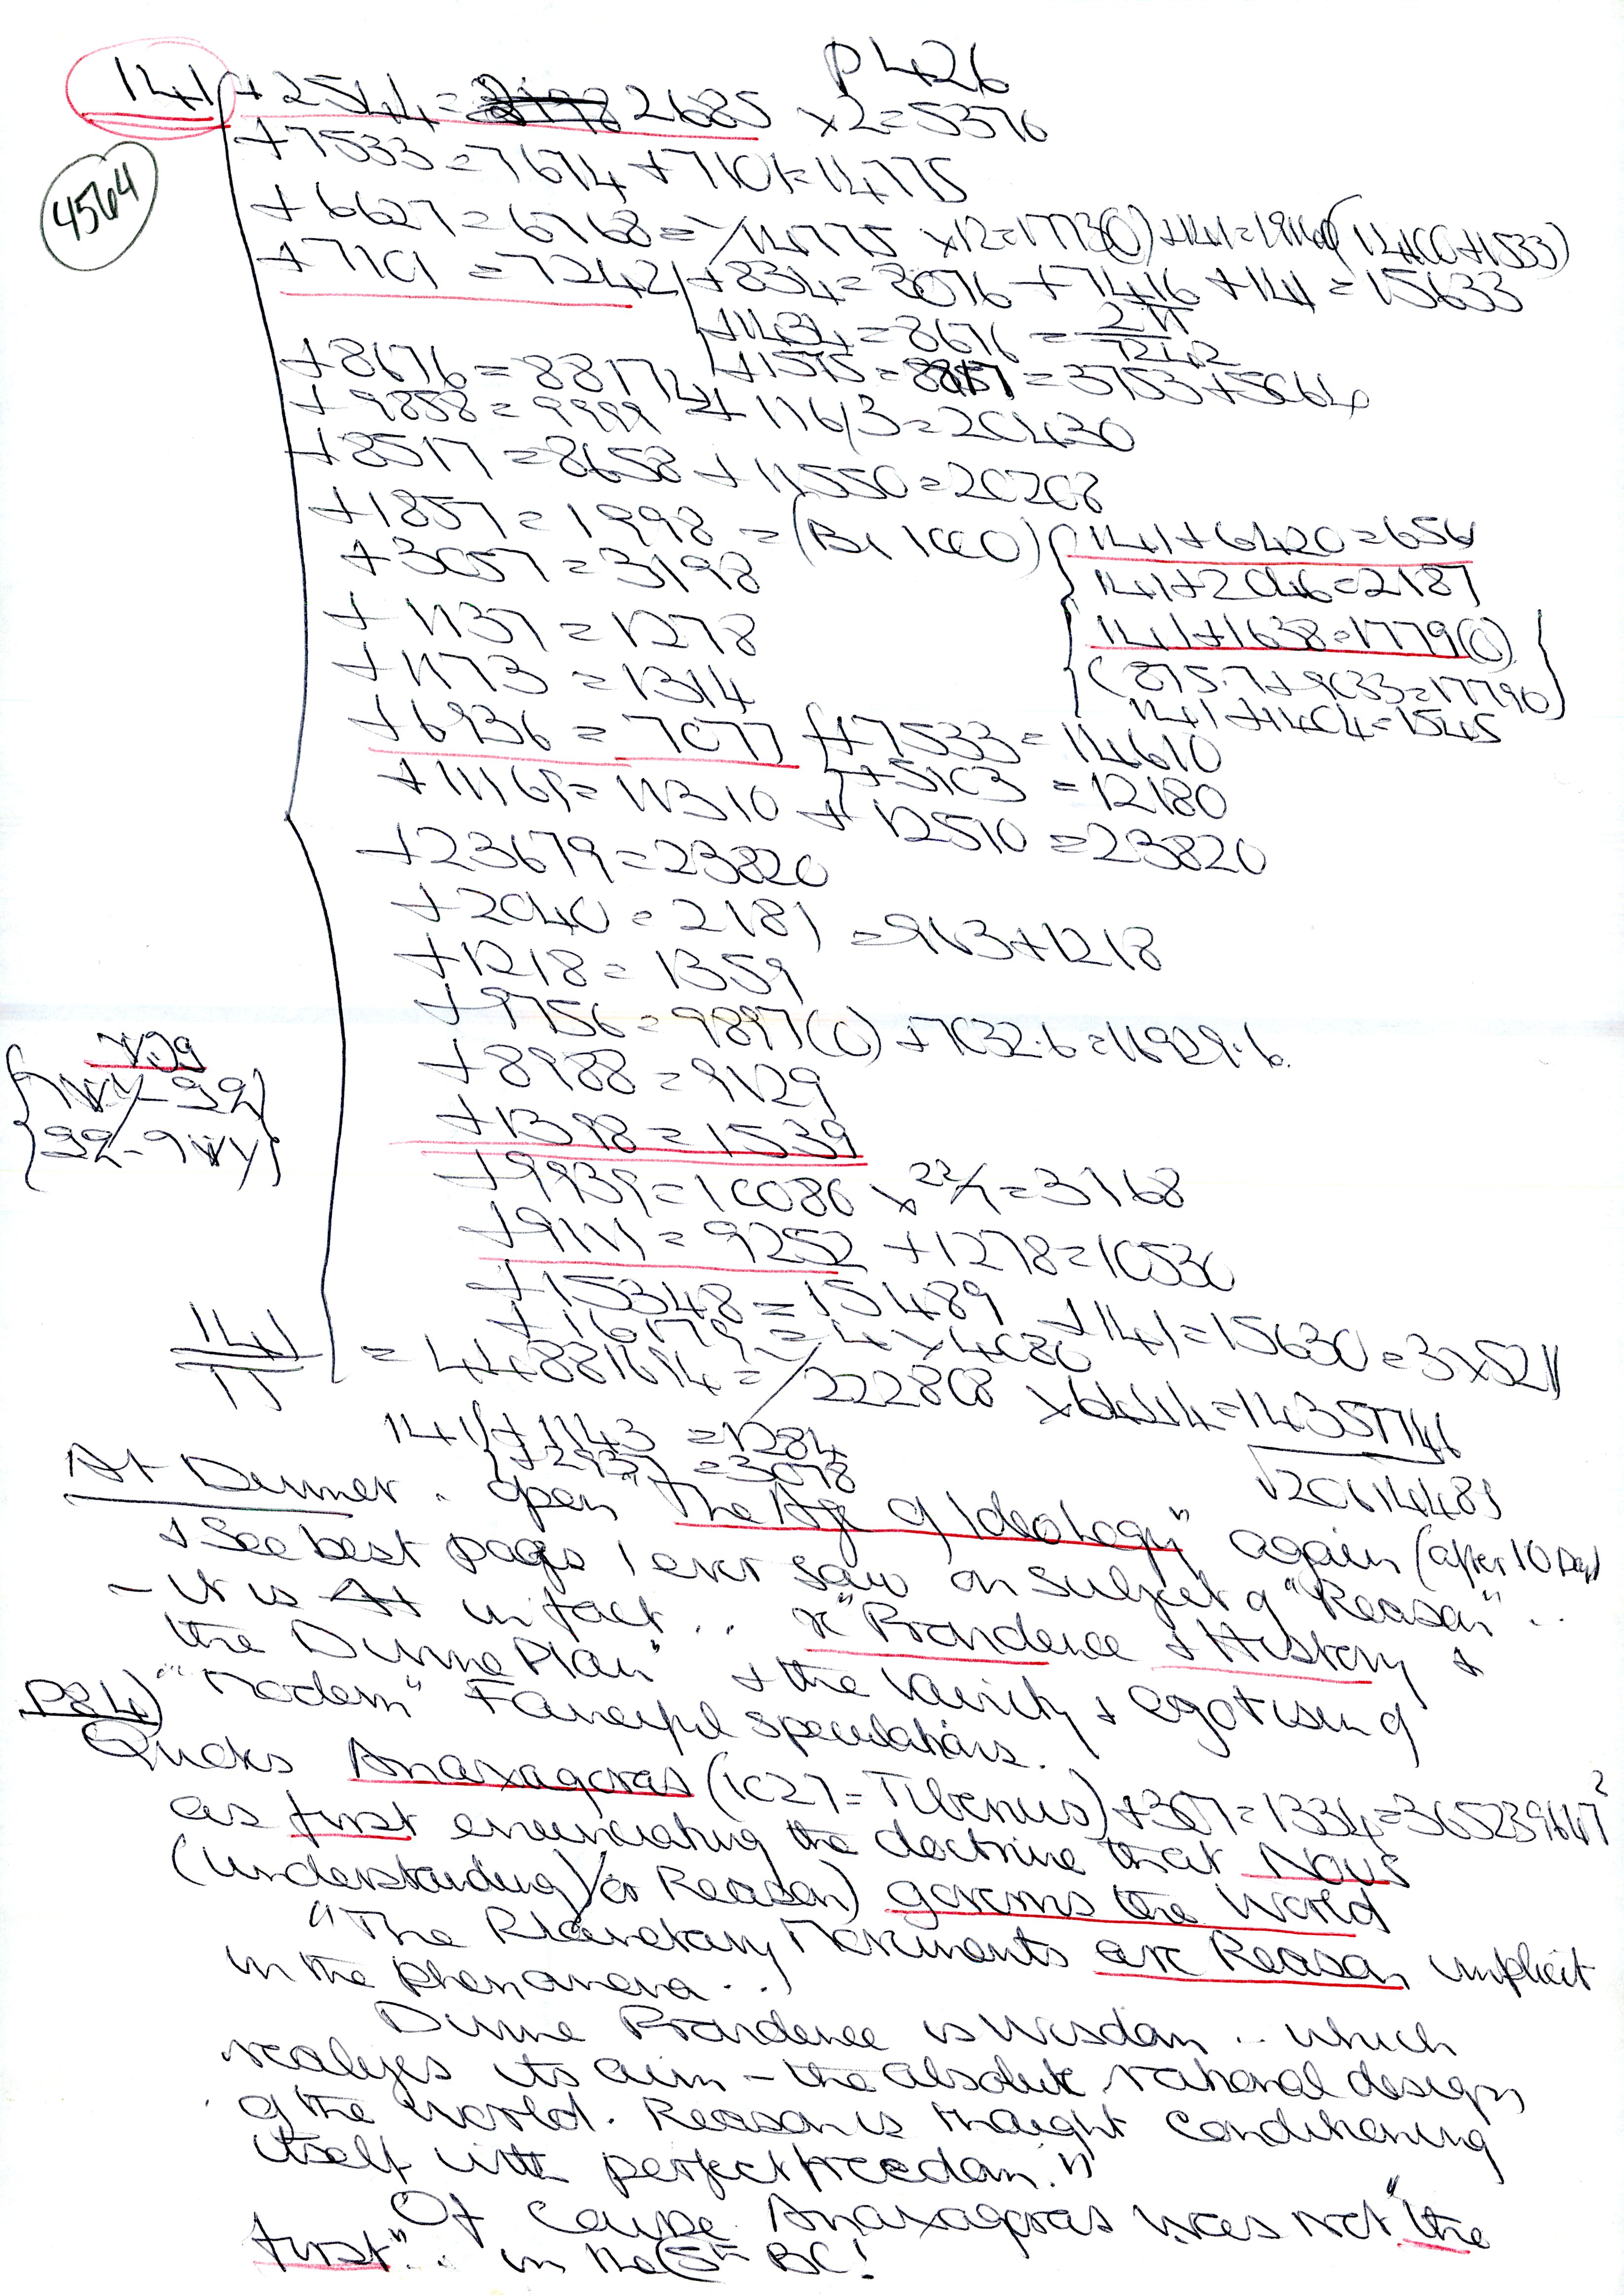 P426
141 + 2544 = 2685 x2=5376
4564
+7533=7674 +7101=14775
+6627=6768= 14775 x12=1773(0)+141=1914(0 (1400+1533)
+7101 =7242 +834=8076 +7416 +141 =15633
+1434=8676 = 2π/7242
+8676=8817 +1575=8817 =3753+5064
+9858=9999 + 11613=20430
+8517=8658 + 11550=20208
+1857=1998 =(Bc 1000)
+3057=3198
141+6420=656
141+2046=2187
+1137=1278
141+1638=1779(0)
+1173=1314
(875.7+9033=17790)
141+1404=1545
+6936=7077 +7533=14610
+5103 =12180
+11169=11310 + 12510 =23820
+23679=23820
+2040=2181 =963+1218
+1218=1359
+9756=9897(0) +7032.6=16929.6
+8988=9129
+1398=1539
+9939=10080 x 22/7=3168
+9111=9252 +1278=10530
+15348=15489 +141=15630=3x5211
+16179 =4x4080
141/π = 44881614= 222808 x6444=14357746
√20614489
141 +1143 =1284
+2937 =3078
At Dinner. open "The Age of Ideology" again (after 10 Days
& See best pages I ever saw on subject of "Reason"..
- it is in fact.. "Providence & History &
the Divine Plan" & the vanity & egotism of
P84) "Modern" Fanciful speculations.
Quotes Anaxagoras (1027=Tiberius)+307=1334=365239647²
as first enunciating the doctrine that Nous
(understanding) or Reason) governs the World
"The Planetary Movements are Reason implicit
in the phenomena..
Divine Providence is Wisdom.. which
realizes its aim - the absolute rational design
of the world. Reason is thought conditioning
itself with perfect freedom."
Of course Anaxagoras was not "the
first".. in the 5th BC!